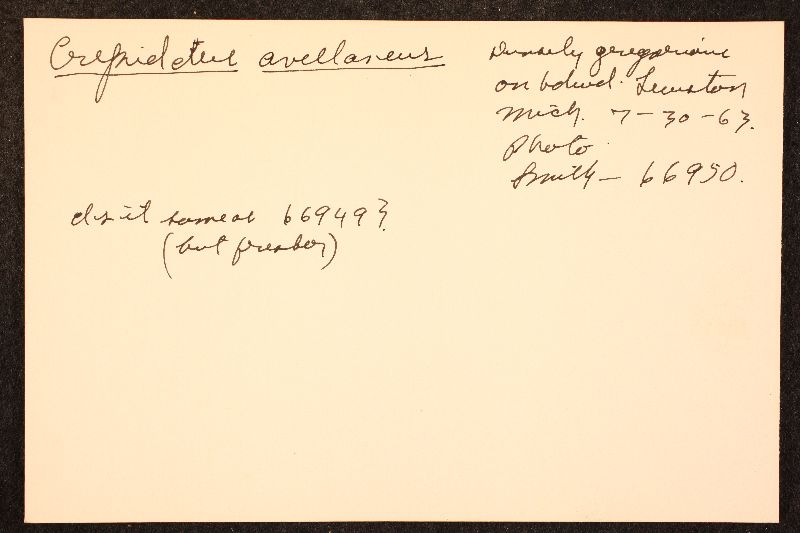 Crepidotus avellaneus
Densely gregarious
on hdwd. Lewiston
Mich. 7-30-63.
Photo
Smith - 66950.
Is it same as 66949?
(but fresher)